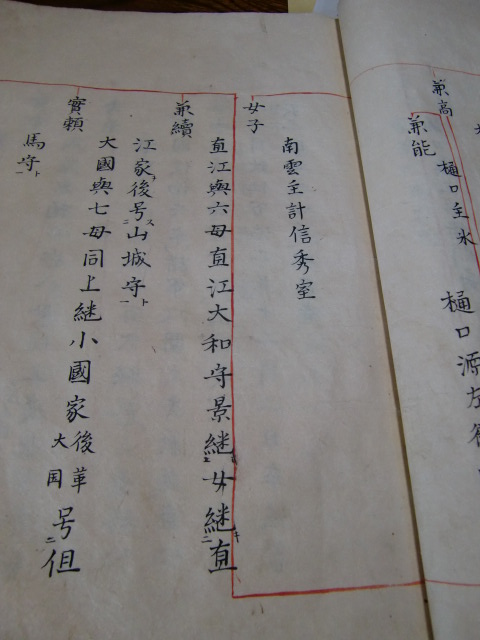 兼高
樋口主水
兼能
樋口源左衛
女子
南雲主計信秀室
兼續
直江與六母直江大和守景継女継直
江家後号山城守ト
實頼
大國與七母同上継小國家後革大国号但
馬守ト